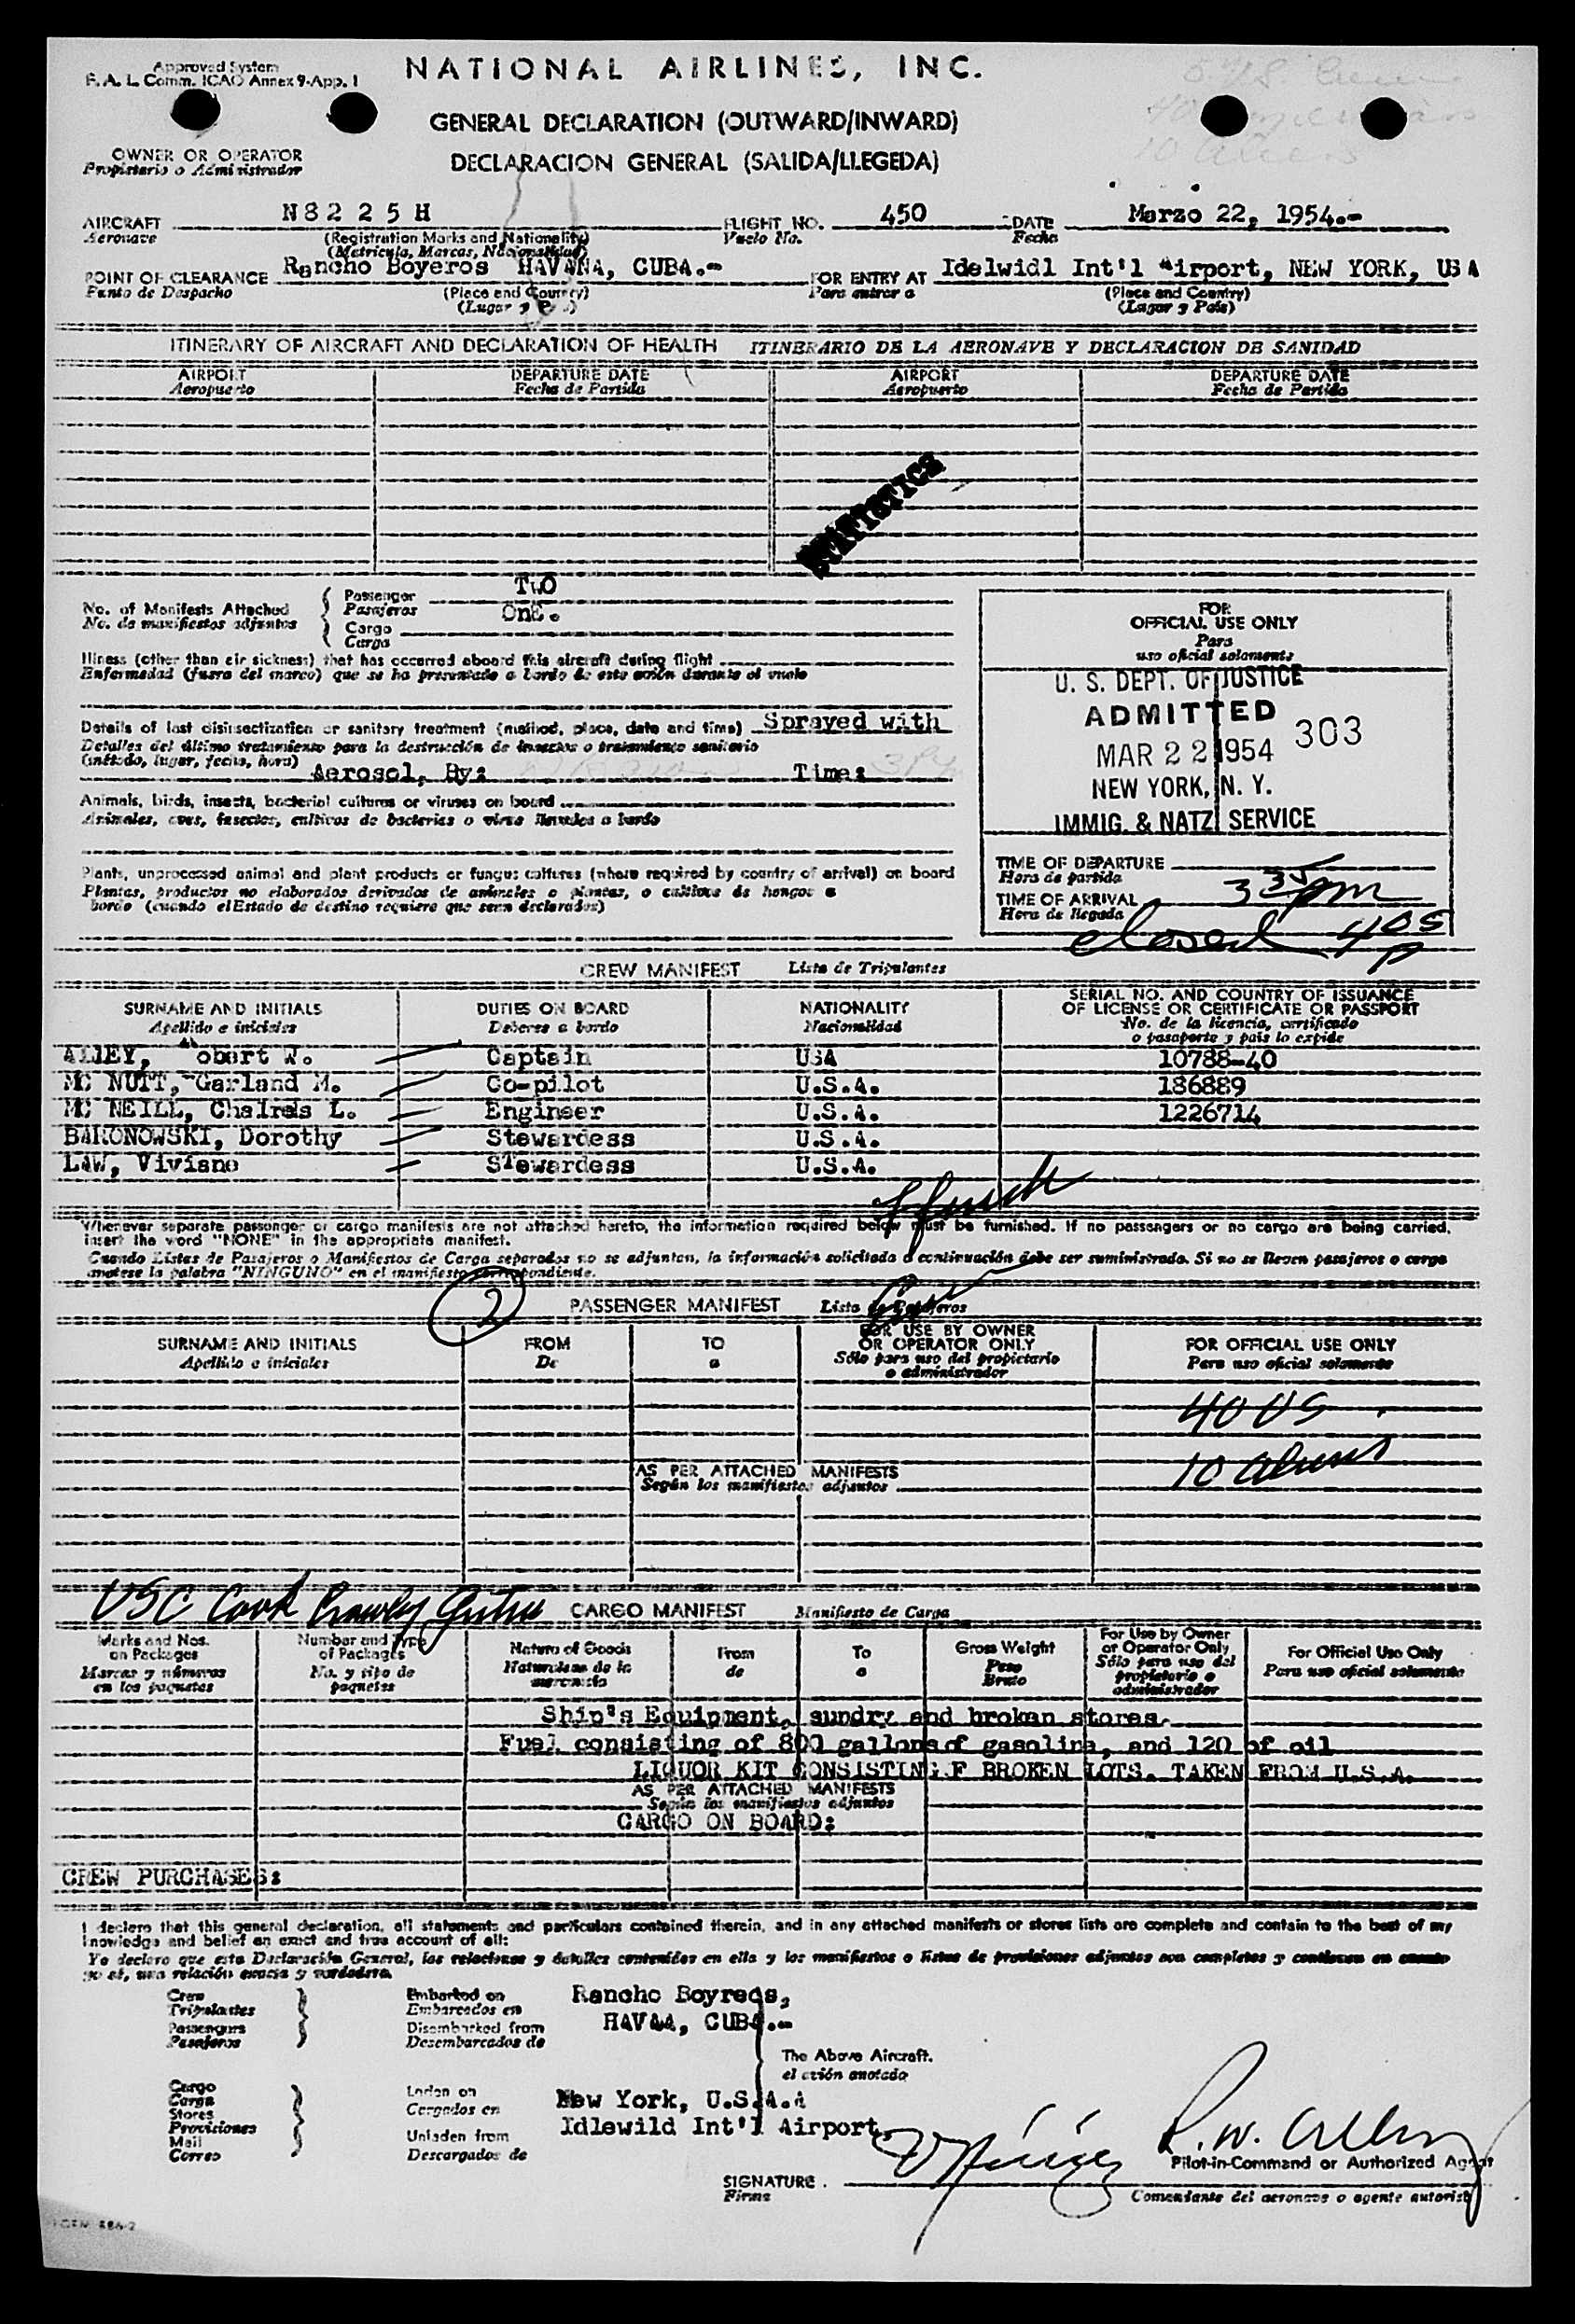 Approved System
F. A. L. Comm. ICAO Annex 9-App. 1
NATIONAL AIRLINES, INC.
GENERAL DECLARATION (OUTWARD/INWARD)
DECLARACION GENERAL (SALIDA/LLEGEDA)
OWNER OR OPERATOR
Propietario o Administrador
AIRCRAFT N8225H FLIGHT NO. 450 DATE Marzo 22, 1954.-
Aeronave (Registration Marks and Nationality) Vuelo No. Fecha
(Matricula, Marcas, Nacionalidad)
POINT OF CLEARANCE Rancho Boyeros HAVANA, CUBA.- FOR ENTRY AT Idelwidl Int'l Airport, NEW YORK, USA
Punto de Despacho (Place and Country) Para entrar a (Place and Country)
(Lugar y País) (Lugar y País)
ITINERARY OF AIRCRAFT AND DECLARATION OF HEALTH ITINERARIO DE LA AERONAVE Y DECLARACION DE SANIDAD
AIRPORT DEPARTURE DATE AIRPORT DEPARTURE DATE
Aeropuerto Fecha de Partida Aeropuerto Fecha de Partida
STATISTICS
No. of Manifests Attached Passenger TWO
No. de manifiestos adjuntos Pasajeros OnE.
Cargo
Carga
Illness (other than air sickness) that has occurred aboard this aircraft during flight
Enfermedad (fuera del mareo) que se ha presentado a bordo de este avión durante el vuelo
Details of last disinsectization or sanitary treatment (method, place, date and time) Sprayed with
Detalles del último tratamiento para la destrucción de insectos o tratamiento sanitario
(método, lugar, fecha, hora) Aerosol, By: Time:
Animals, birds, insects, bacterial cultures or viruses on board
Animales, aves, insectos, cultivos de bacterias o virus llevados a bordo
Plants, unprocessed animal and plant products or fungus cultures (where required by country of arrival) on board
Plantas, productos no elaborados derivados de animales o plantas, o cultivos de hongos a
bordo (cuando el Estado de destino requiere que sean declarados)
FOR
OFFICIAL USE ONLY
Para
uso oficial solamente
U. S. DEPT. OF JUSTICE
ADMITTED
MAR 22 1954 303
NEW YORK, N. Y.
IMMIG. & NATZ SERVICE
TIME OF DEPARTURE
Hora de partida
TIME OF ARRIVAL 3 35 pm
Hora de llegada
closed 4 05 p
CREW MANIFEST Lista de Tripulantes
SURNAME AND INITIALS DUTIES ON BOARD NATIONALITY SERIAL NO. AND COUNTRY OF ISSUANCE
OF LICENSE OR CERTIFICATE OR PASSPORT
Apellido e iniciales Deberes a bordo Nacionalidad No. de la licencia, certificado
o pasaporte y país lo expide
obert W. Captain USA 10788-40
MC NUTT, Garland M. Co-pilot U.S.A. 186889
MC NEILL, Chalres L. Engineer U.S.A. 1226714
BARONOWSKI, Dorothy Stewardess U.S.A.
LAW, Viviane Stewardess U.S.A.
Whenever separate passenger or cargo manifests are not attached hereto, the information required below must be furnished. If no passengers or no cargo are being carried,
insert the word "NONE" in the appropriate manifest.
Cuando Listas de Pasajeros o Manifiestos de Carga separados no se adjuntan, la información solicitada a continuación debe ser suministrada. Si no se llevan pasajeros o carga
anotese la palabra "NINGUNO" en el manifiesto correspondiente.
2
PASSENGER MANIFEST Lista de Pasajeros
SURNAME AND INITIALS FROM TO FOR USE BY OWNER
OR OPERATOR ONLY FOR OFFICIAL USE ONLY
Apellido e iniciales De a Sólo para uso del propietario
o administrador Para uso oficial solamente
40 US
10 aliens
AS PER ATTACHED MANIFESTS
Según los manifiestos adjuntos
USC Cook
CARGO MANIFEST Manifiesto de Carga
Marks and Nos.
on Packages
Marcas y números
en los paquetes
Number and Type
of Packages
No. y tipo de
paquetes
Nature of Goods
Naturaleza de la
mercancía
From
de
To
a
Gross Weight
Peso
Bruto
For Use by Owner
or Operator Only
Sólo para uso del
propietario o
administrador
For Official Use Only
Para uso oficial solamente
Ship's Equipment, sundry and broken stores.
Fuel consisting of 800 gallons of gasoline, and 120 of oil
LIQUOR KIT CONSISTING F BROKEN LOTS. TAKEN FROM U.S.A.
AS PER ATTACHED MANIFESTS
Según los manifiestos adjuntos
CARGO ON BOARD:
CREW PURCHASES:
I declare that this general declaration, all statements and particulars contained therein, and in any attached manifests or stores lists are complete and contain to the best of my
knowledge and belief an exact and true account of all:
Yo declaro que esta Declaración General, las relaciones y detalles contenidos en ella y los manifiestos o listas de provisiones adjuntas son completos y contienen en cuanto
yo sé, una relación exacta y verdadera.
Crew
Tripulantes
Passengers
Pasajeros
Embarked on
Embarcados en
Disembarked from
Desembarcados de
Rancho Boyreos,
HAVAA, CUBA.-
The Above Aircraft.
el avión anotado
Cargo
Carga
Stores
Provisiones
Mail
Correo
Laden on
Cargados en
Unladen from
Descargados de
New York, U.S.A.
Idlewild Int'l Airport,
R. W.
Pilot-in-Command or Authorized Agent
SIGNATURE
Firma
Comandante del aeronave o agente autoriz